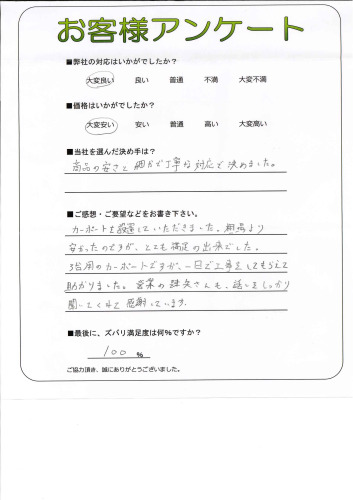 お客様アンケート
■弊社の対応はいかがでしたか？
大変良い 良い 普通 不満 大変不満
■価格はいかがでしたか？
大変安い 安い 普通 高い 大変高い
■当社を選んだ決め手は？
商品の安さと細かで丁寧な対応で決めました。
■ご感想・ご要望などをお書き下さい。
カーポートを設置していただきました。他店より
安かったのですが、とても満足の出来でした。
3台用のカーポートですが、一日で工事をしてもらえて
助かりました。営業の さんも、話しをしっかり
聞いてくれて感謝しています。
■最後に、ズバリ満足度は何%ですか？
100 %
ご協力頂き、誠にありがとうございました。